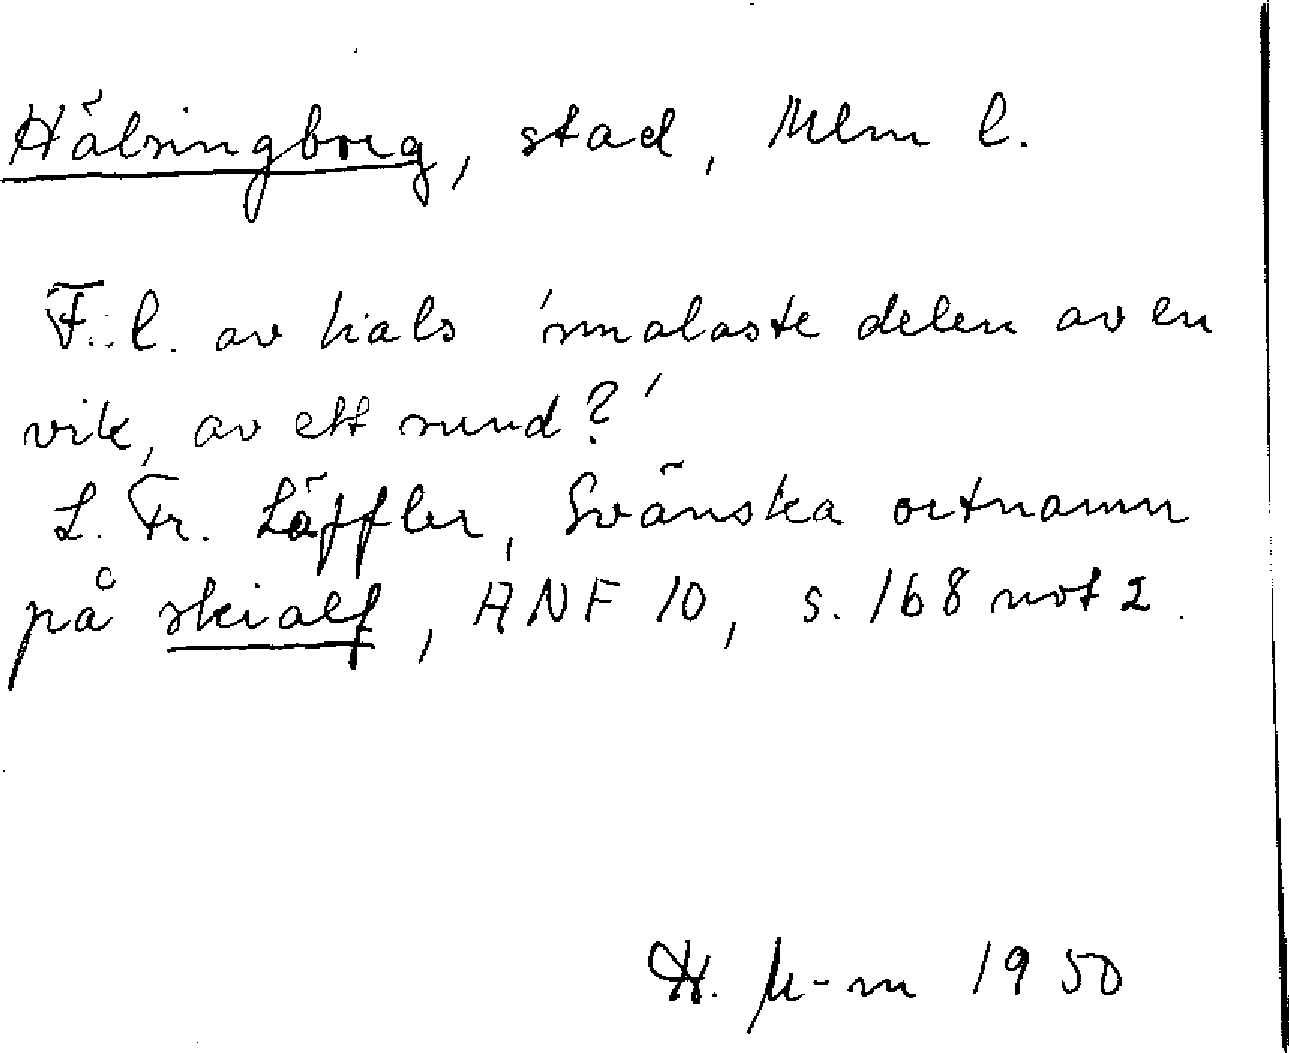 Hälsingborg, stad, Mlm l.
F..l. av hals 'smalaste delen av en
vik, av ett sund?'
L. Fr. Läffler, Svänska ortnamn
på skialf, ANF 10, s. 168 not 2.
H. M-m 1950